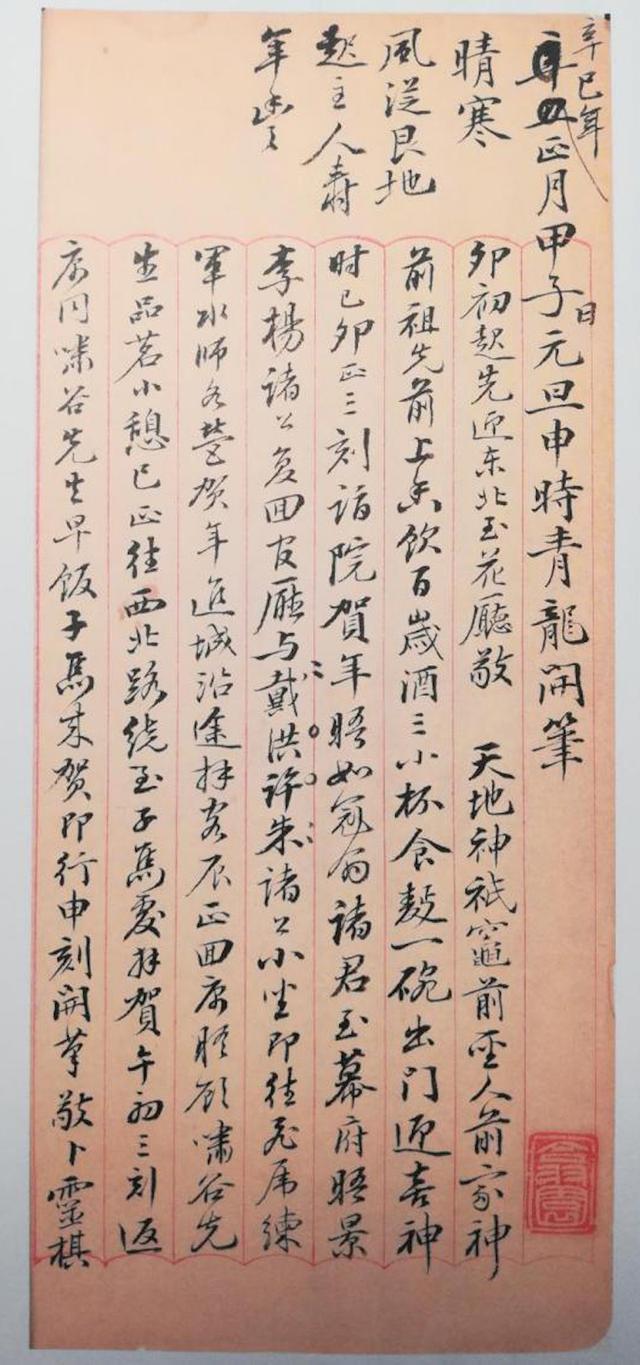 辛巳年
正月甲子日元旦申時青龍開筆
晴寒
風從艮地
起主人壽
年豐
卯初起先迎东北至花廳敬 天地神祇竈前聖人前家神
前祖先前上香飲百歲酒三小杯食麫一碗出門迎喜神
时已卯正三刻詣院賀年晤如冠翁諸君至幕府晤景
李楊諸公复回官廳与戴洪許朱諸公小坐即往飛虎練
軍水師各營賀年進城沿途拜客辰正回寓晤顾嘯谷先
生品茗小憩巳正往西北路绕至子馬處拜賀午初三刻返
寓同嘯谷先生早饭子馬来贺即行申刻開筆敬卜靈棋